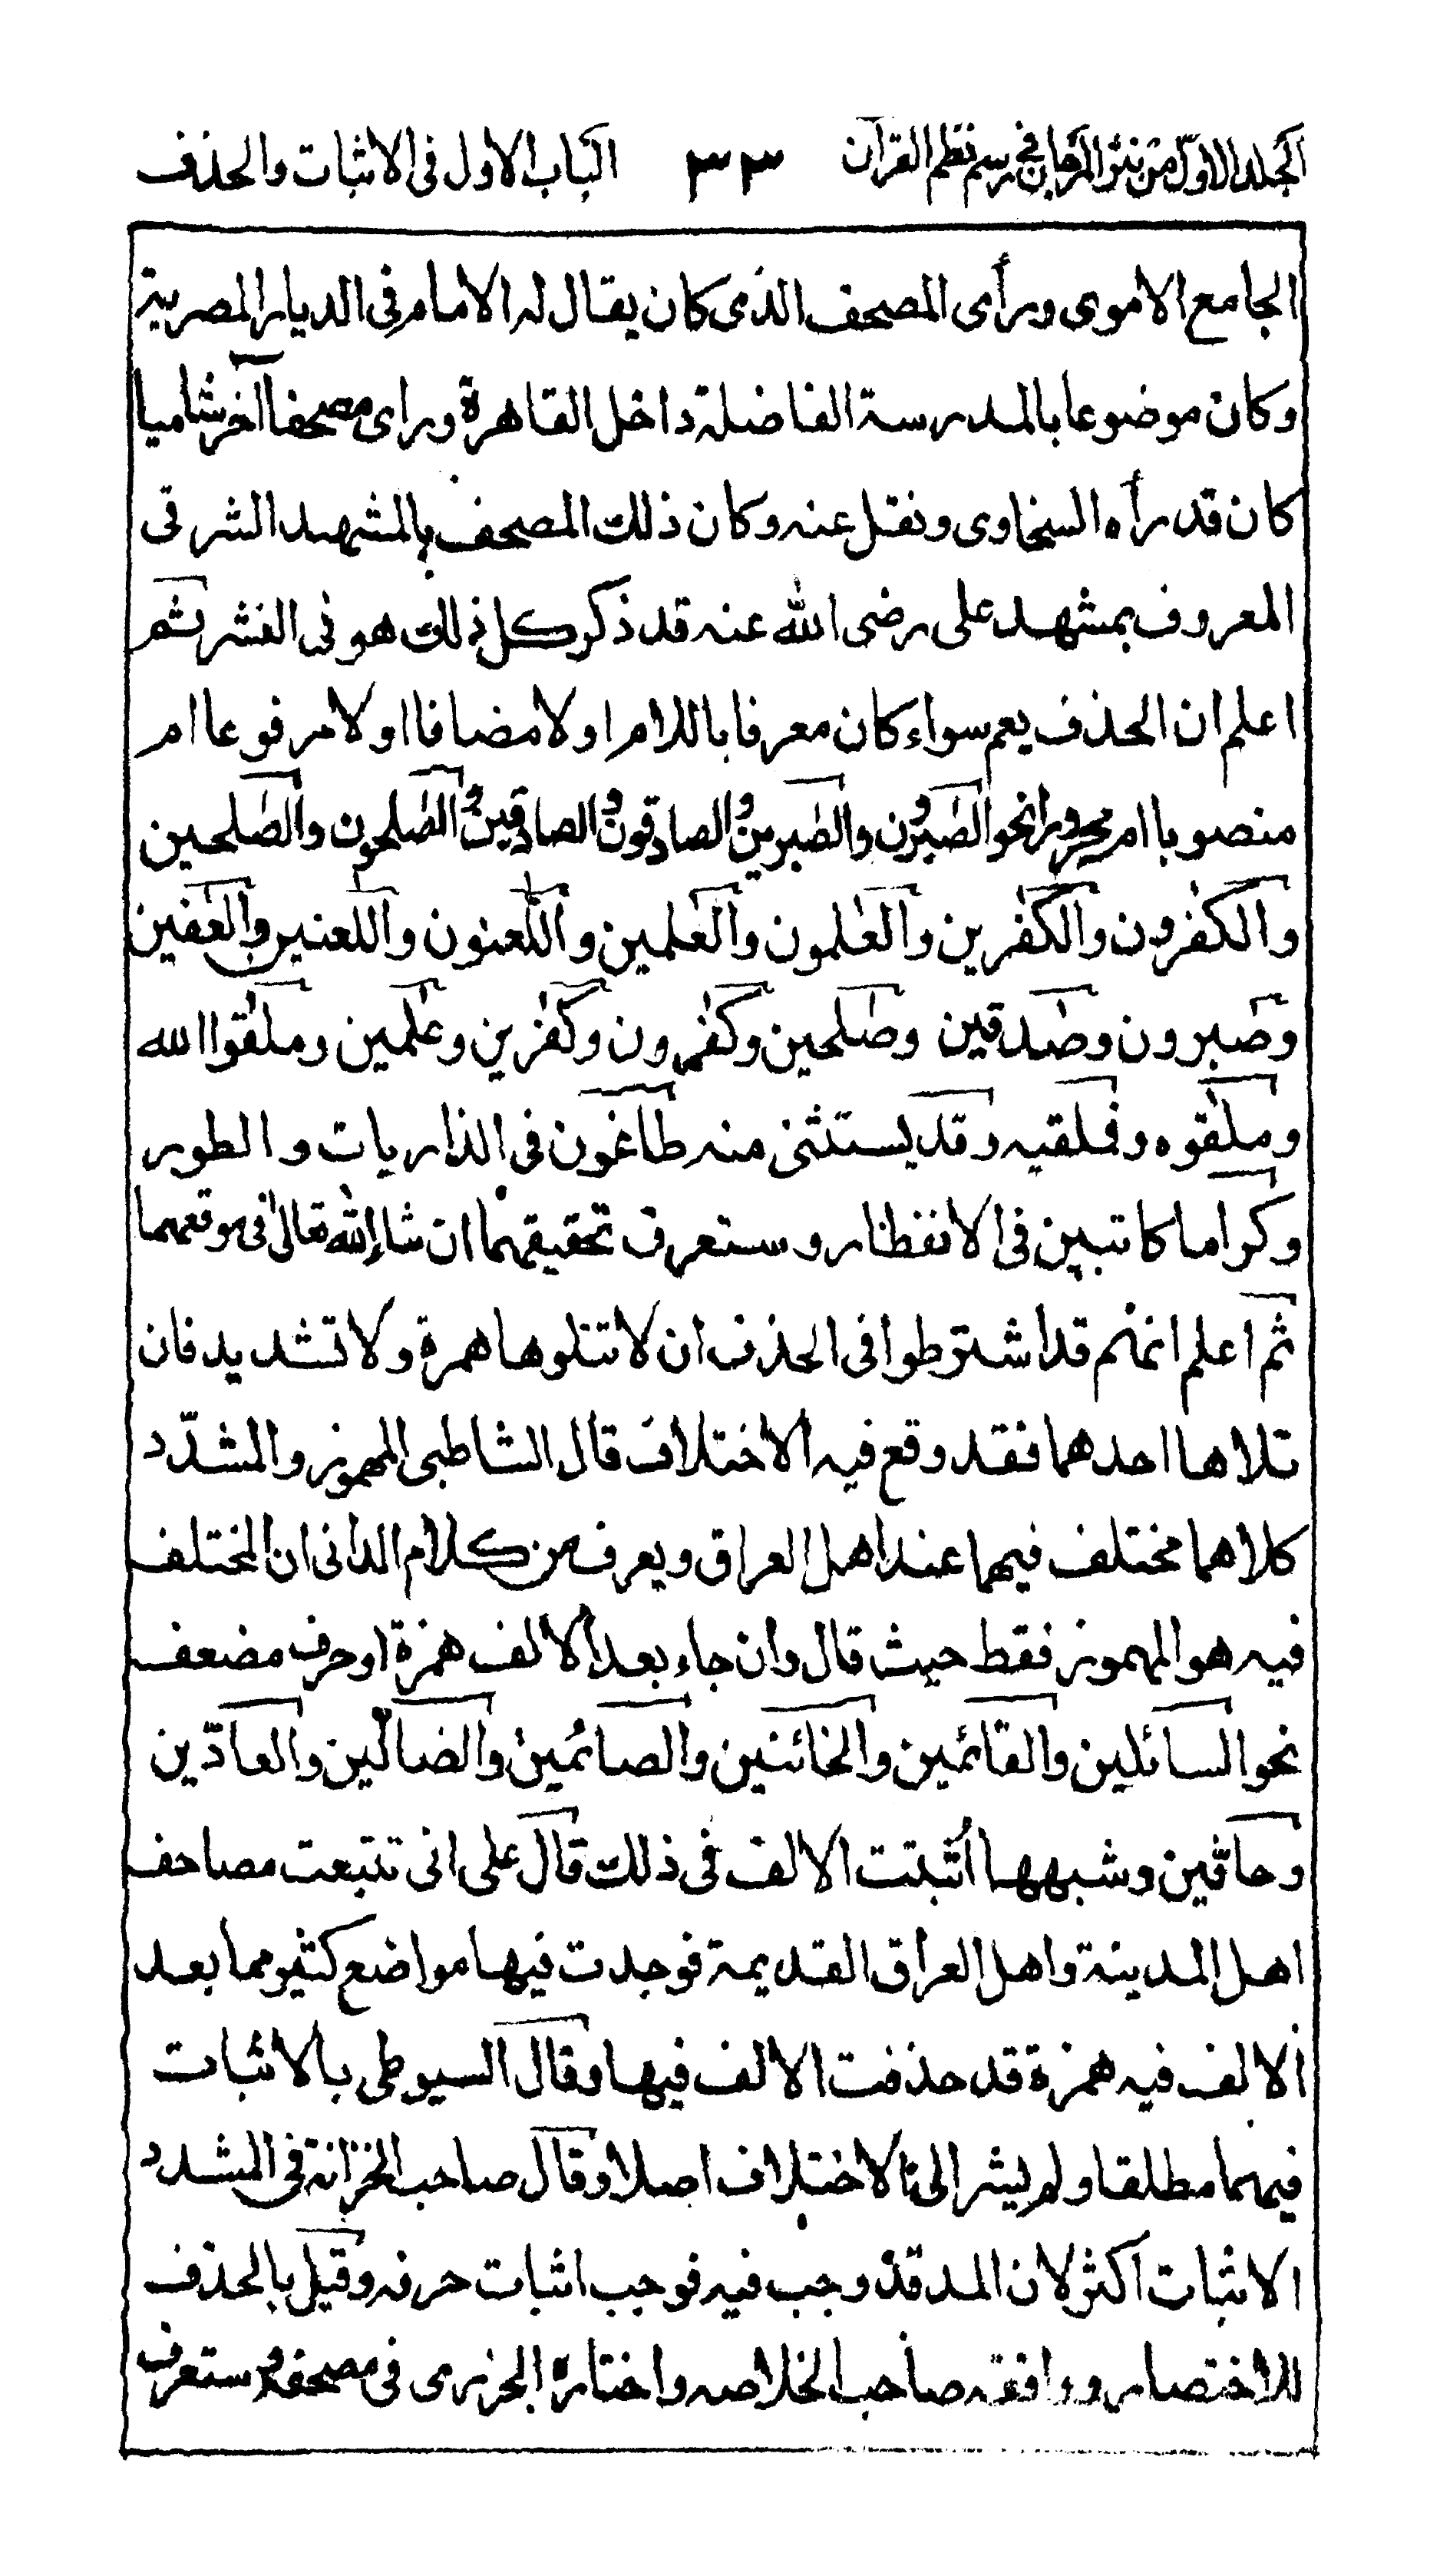 المجلد الاول من نثر المرجان في رسم نظم القرآن ٣٣ الباب الاول فى الاثبات والحذف
الجامع الاموى ورأى المصحف الذى كان يقال له الامام فى الديار المصرية
وكان موضوعا بالمدرسة الفاضلة داخل القاهرة وراى مصحفا آخر شاميا
كان قد رأه السخاوى ونقل عنه وكان ذلك المصحف بالمشهد الشرقى
المعروف بمشهد على رضى الله عنه قد ذكر كل ذلك هو فى النشر ثم
اعلم ان الحذف يعم سواء كان معرفا باللام او لا مضافا او لا مرفوعا ام
منصوبا ام مجرورا نحو الصٰبرون والصٰبرين والصادقون والصادقين والصٰلحون والصٰلحين
والكٰفرون والكٰفرين والعٰلمون والعٰلمين واللّٰعنون واللّٰعنين والعٰفين
وصٰبرون وصٰدقين وصٰلحين وكٰفرون وكٰفرين وعٰلمين وملٰقوا الله
وملٰقوه وفملٰقيه وقد يستثنى منه طاغون فى الذاريات والطور
وكراما كاتبين فى الانفطار وستعرف تحقيقهما ان شاء الله تعالى فى موقعهما
ثم اعلم انهم قد اشترطوا فى الحذف ان لا تتلوها همزة ولا تشديد فان
تلاها احدهما فقد وقع فيه الاختلاف قال الشاطبى المهموز والمشدّد
كلاهما مختلف فيهما عند اهل العراق ويعرف من كلام الدانى ان المختلف
فيه هو المهموز فقط حيث قال وان جاء بعد الالف همزة او حرف مضعف
نحو السائلين والقائمين والخائنين والصائمين والضالّين والعادّين
وحافّين وشبهها اُثبتت الالف فى ذلك قال على انى تتبعت مصاحف
اهل المدينة واهل العراق القديمة فوجدت فيها مواضع كثيرة مما بعد
الالف فيه همزة قد حذفت الالف فيها وقال السيوطى بالاثبات
فيهما مطلقا ولم يشر الى الاختلاف اصلا وقال صاحب الخزانة فى المشدد
الاثبات اكثر لان المد قد وجب فيه فوجب اثبات حرفه وقيل بالحذف
للاختصار ووافقه صاحب الخلاصه واختاره الجزرى فى مصحفه وستعرف